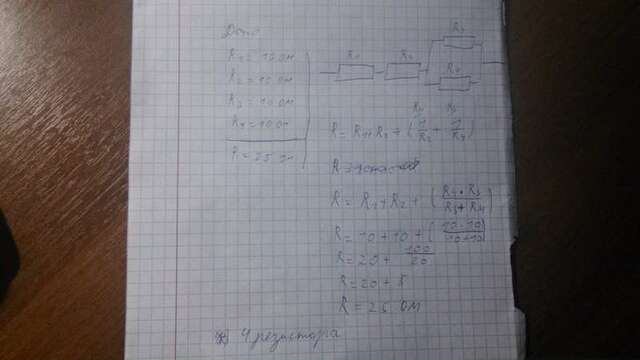 Дано
R₁ = 10 Ом
R₂ = 10 Ом
R₃ = 10 Ом
R₄ = 10 Ом
R = 25 Ом
R₁ R₂ R₃
R₄
R = R₁ + R₂ + (1/R₂ + 1/R₄)
R = R₁ + R₂ + (R₄ · R₃ / R₃ + R₄)
R = 10 + 10 + (10 · 10 / 10 + 10)
R = 20 + 100/20
R = 20 + 5
R = 25 Ом
4 резистора